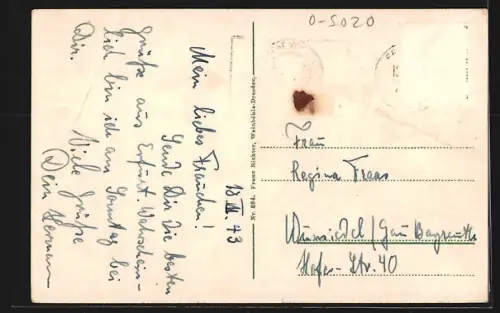 O-5020
18 III 43
Mein liebes Frauchen!
Sende Dir die besten
Grüße aus Erfurt. Wahrschein-
lich bin ich am Sonntag bei
Dir.
Viele Grüße
Dein Hermann
Nr. 894. Franz Richter, Weinböhla-Dresden.
Frau
Regina Fraas
Wunsiedel/Gau Bayreuth
Hofer-Str. 40